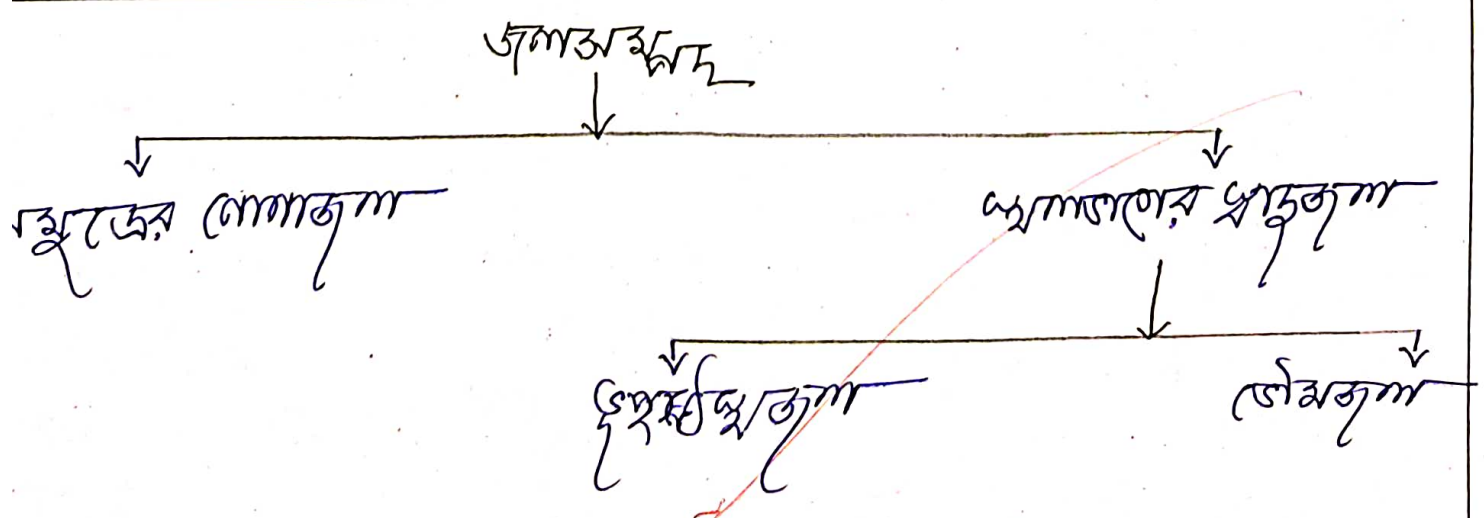 জলসম্পদ
সমুদ্রের লোনাজল স্থলভাগের স্বাদুজল
ভূপৃষ্ঠস্থজল ভৌমজল